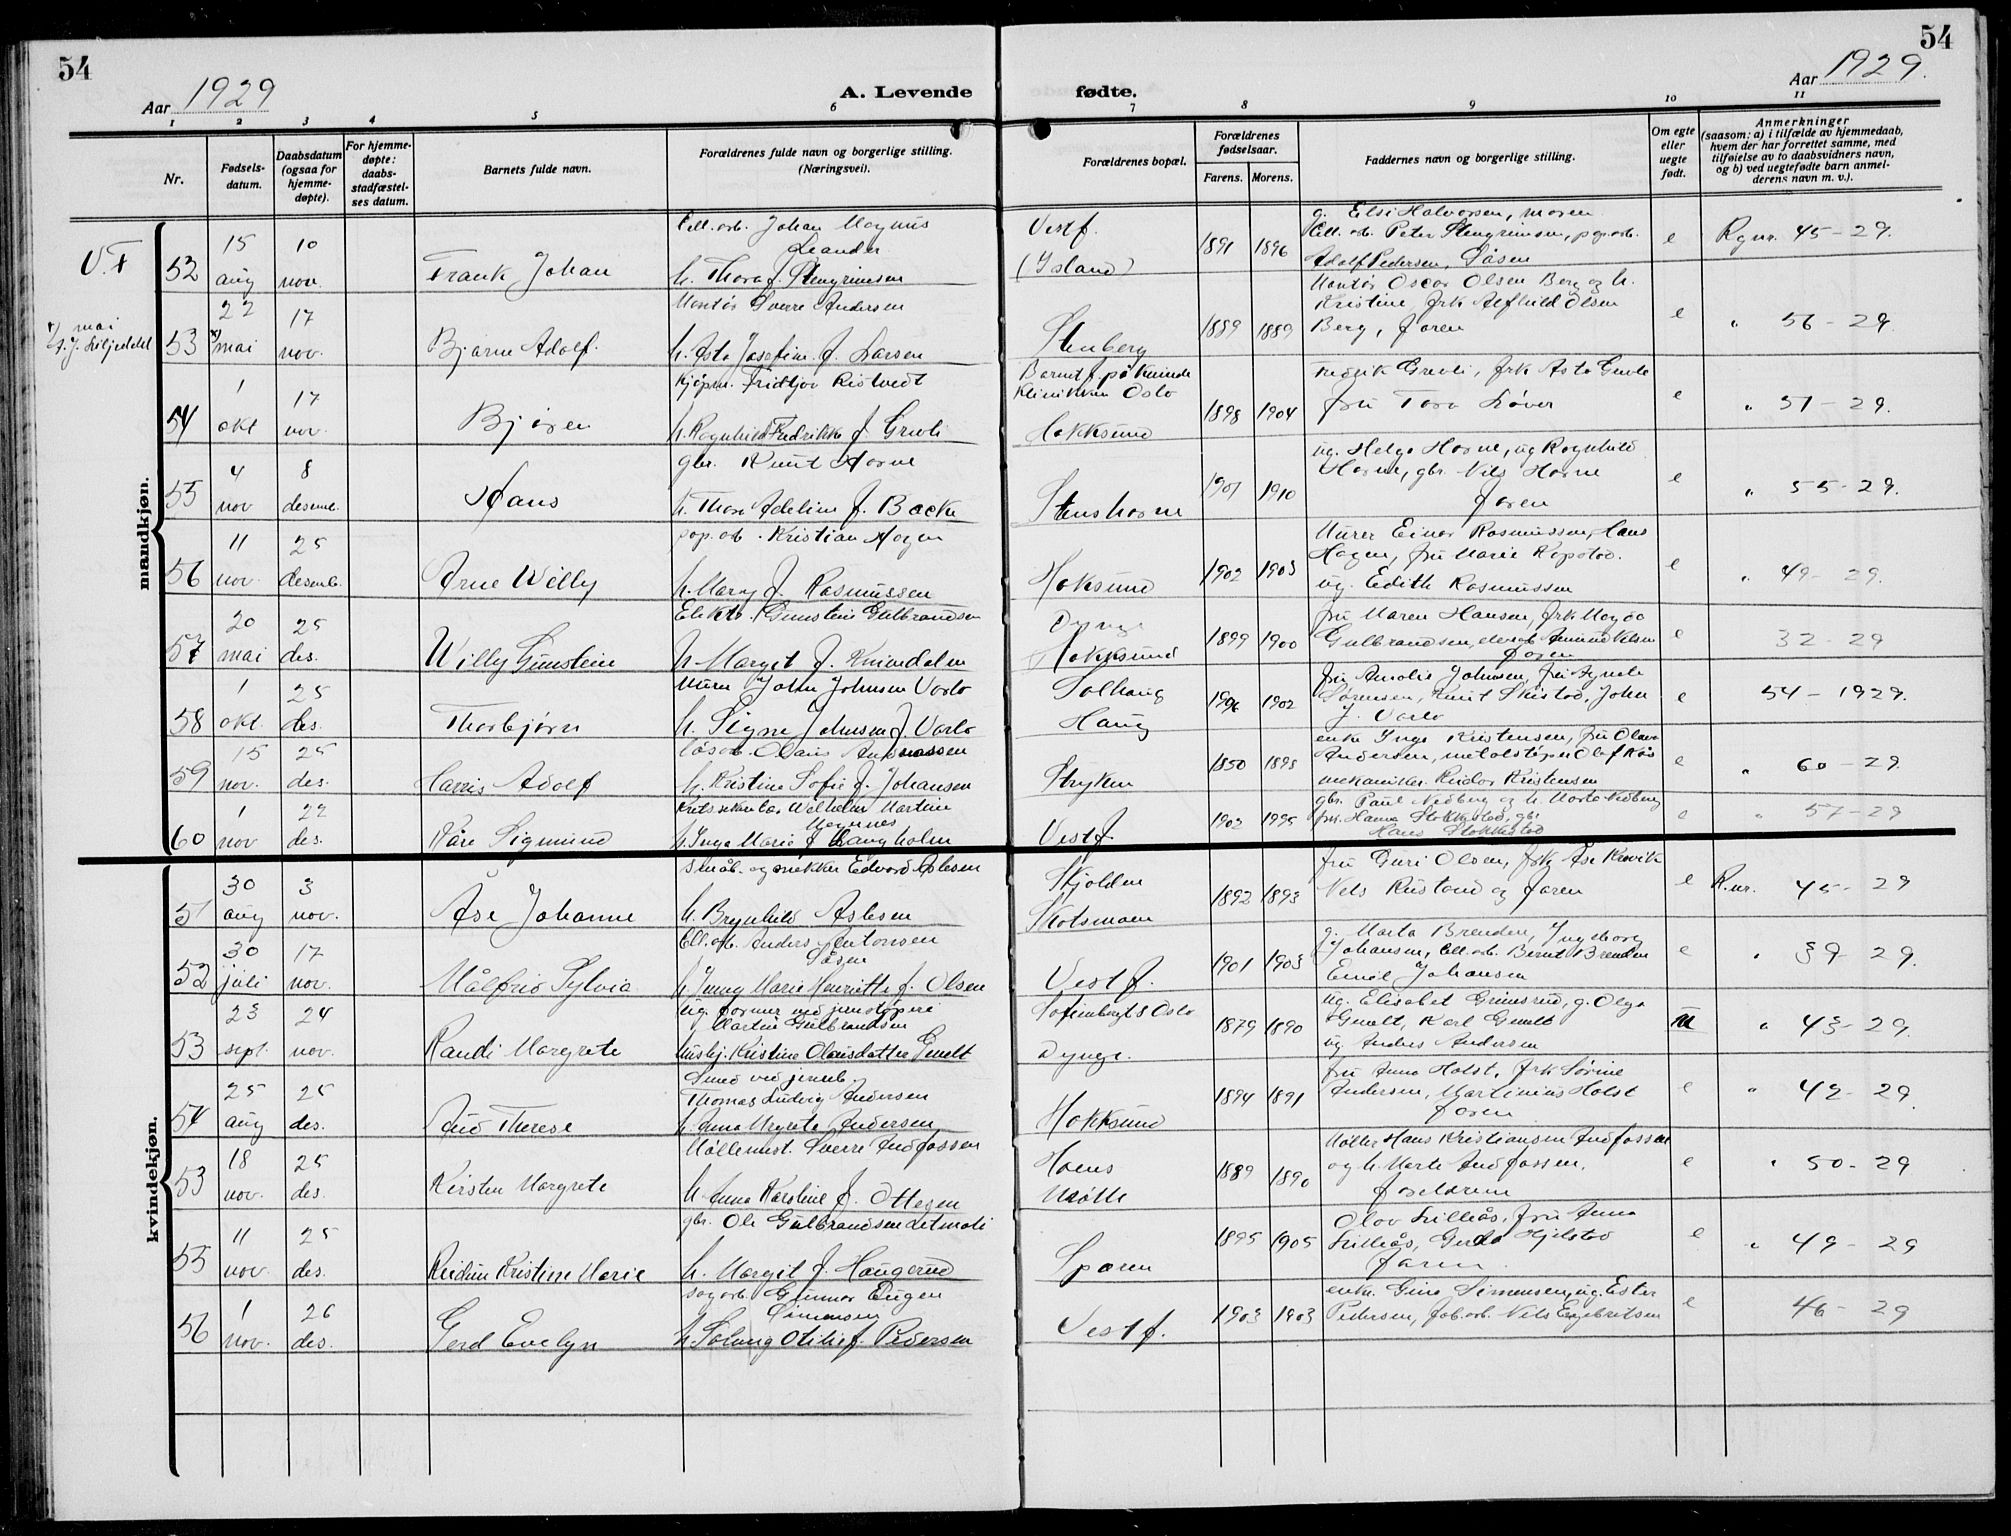 54
Aar 1929
A. Levende
fødte.
Aar 1929.
54
1 2 3 4 5 6 7 8 9 10 11
Nr.
Fødsels-
datum.
Daabsdatum
(ogsaa for
hjemme-
døpte).
For hjemme-
døpte:
daabs-
stadfæstel-
ses datum.
Barnets fulde navn.
Forældrenes fulde navn og borgerlige stilling.
(Næringsvei).
Forældrenes bopæl.
Forældrenes
fødselsaar.
Farens. Morens.
Faddernes navn og borgerlige stilling.
Om egte
eller
uegte
født.
Anmerkninger
(saasom: a) i tilfælde av hjemmedaab,
hvem der har forrettet samme, med
tilføielse av to daabsvidners navn,
og b) ved uegtefødte barn anmel-
derens navn m. v.).
mandkjøn.
V. F
52
15
aug
10
nov.
Frank Johan
Cell. arb. Johan Magnus
Leander
h. Thora f. Stengrimsen
Vestf.
(Island)
1891 1896
g. Elsi Halvorsen, moren
Cell. arb. Peter Stengrimsen, pap.arb.
Adolf Pedersen, Låsen
e
R.gnr. 45-29.
x) mai
53
22
x) mai
17
nov.
Bjarne Adolf.
Montør Sverre Andersen
h. Asta Josefine f. Larsen
Stenberg
1889 1889
Montør Oscar Olsen Berg og h.
Kristine, frk Alfhild Olsen
Berg, faren
e
" 56-29.
54
1
okt
17
nov.
Bjørn
Kjøpm. Fridtjov Ristvedt
h. Ragnhild Fredrikke f. Grevli
Barnet f. på Kvinde
Klinikken Oslo
Hokksund
1898 1904
Fredrik Grevli, frk Asta Grevle
fru Tora Løver
e
" 51-29.
55
4
nov
8
desemb.
Hans
gbr. Knut Horne
h. Thora Adeline f. Backe
Stenshorne
1901 1910
ug. Helga Horne, ug Ragnhild
Horne, gbr. Nils Horne
faren
e
" 55-29.
56
11
nov.
25
desemb.
Arne Willy
pap. arb. Kristian Hagen
h. Mary f. Rasmussen
Hoksund
1902 1903
Murer Einar Rasmussen, Hans
Hagen, fru Marie Kopstad.
ug. Edith Rasmussen
e
" 49-29.
57
20
mai
25
des.
Willy Gunstein
Elektr. Gunstein Gulbrandsen
h. Margit f. Knivedalen
Dynge
Hokksund
1899 1900
fru Maren Hansen, frk Magda
Gulbrandsen,
faren
e
32-29
58
1
okt.
25
des.
Thorbjørn
Murer John Johnsen Varlo
h. Signe Johnsen f. Varlo
Solhaug
Haug
1902
fru Amalie Johnsen, fru Agnete
Sørensen, Knut Skistad, John
J. Varlo
e
54-1929.
59
15
nov.
25
des.
Harris Adolf
Løsarb. Olaus Andreassen
h. Kristine Sofie f. Johansen
Stryken
1850 1898
enke Inga Kristensen, fru Olava
Andersen, metalstøper Olaf Kås
mekaniker Reidar Kristensen
e
" 60-29.
60
1
nov
22
des.
Kåre Sigmund
Wilhelm Martin
Magnes
h. Inga Marie f. Langholm
Vestf.
1902
gbr. Paul Nedberg og h. Marta Nedberg
frk. Hanna Stokkstad, gbr.
Hans Stokkstad
e
" 57-29
kvindekjøn.
51
30
aug
3
nov.
Åse Johanne
småb. og snekker Edvard Aslesen
h. Brynhild Aslesen
Skjolden
Skotsmoen
1892 1893
fru Guri Olsen, frk Åse Ravik
Nels Rustand og faren
e
R.nr. 45-29
52
30
juli
17
nov.
Målfrid Sylvia
Cell. arb. Anders Antonsen
Låsen
h. Jenny Marie Henriette f. Olsen
Vestf.
1901 1903
g. Marta Brenden, Ingeborg
Johansen, Cell. arb. Bernt Brenden
Emil Johansen
e
" 39-29.
53
23
sept.
24
nov.
Randi Margrete
ug. former ved jernstøperi
Martin Gulbrandsen
hushj. Kristine Olausdatter Gmelt
Sofienbergt 8 Oslo
Dynge.
1879 1890
ug. Elisabet Grimsrud, g. Olga
Gmelt, Karl Gmelt
ug Anders Andersen
u
" 43-29.
54
25
aug
25
des.
Aud Therese
Smed ved jernb.
Thomas Ludvig Andersen
h. Anna Mrgrete Andersen
Hokksund
1894 1891
fru Anna Holst, frk Sørine
Andersen, Martinius Holst
faren
e
" 42-29.
53
18
nov.
25
des.
Kirsten Margrete
Møllemest. Sverre Andfossen
h. Anna Karoline f. Ottesen
Hoens
Mølle
1889 1890
Møller Hans Kristiansen Andfossen
og h. Marte Andfossen,
foreldrene
e
" 50-29
55
11
nov.
25
des.
Reidun Kristine Marie
gbr. Ole Gulbrandsen
h. Margit f. Haugerud
Sparen
1895 1905
Olav Lilleås, fru Anna
Lilleås, Gerda Hjelstad
faren
e
" 49-29
56
1
nov.
26
des.
Gerd Evelyn
sagarb. Gunnar Eugen
Simensen
h. Solveig Otilie f. Pedersen
Vestf.
1903 1903
enke Gina Simensen, ug. Ester
Pedersen, fab.arb. Nils Engebretsen
e
46-29